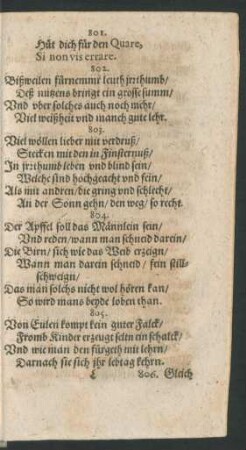 801.
Hüt dich für den Quare,
Si non vis errare.
802.
Bißweilen fürnemme leuth jrrthumb/
Deß nutzens bringt ein grosse summ/
Vnd vber solches auch noch mehr/
Viel weißheit vnd manch gute lehr.
803.
Viel wöllen lieber mit verdruß/
Stecken mit den in Finsternuß/
In jrrthumb leben vnd blind sein/
Welche sind hochgeacht vnd fein/
Als mit andren/die gring vnd schlecht/
An der Sonn gehn/den weg/so recht.
804.
Der Apffel soll das Männlein sein/
Vnd reden/wann man schneid darein/
Die Birn/sich wie das Weib erzeign/
Wann man darein schneid/fein still-
schweign/
Das man solchs nicht wol hören kan/
So wird mans beyde loben than.
805.
Von Eulen kompt kein guter Falck/
Fromb Kinder erzeugt seltn ein schalck/
Vnd wie man den fürgeth mit lehrn/
Darnach sie sich jhr lebtag kehrn.
806. Gleich